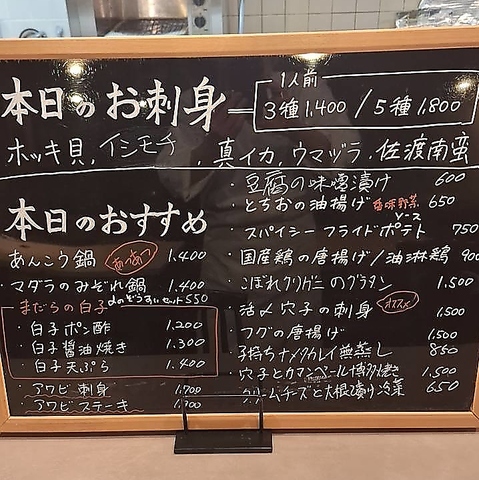 本日のお刺身
1人前
3種1,400 / 5種1,800
ホッキ貝, イシモチ , 真イカ, ウマヅラ, 佐渡南蛮
本日のおすすめ
あんこう鍋 あつあつ 1,400
マダラのみぞれ鍋 1,400
のぞうすいセット550
まだらの白子
・白子ポン酢 1,200
・白子醤油焼き 1,300
・白子天ぷら 1,400
アワビ刺身 1,700
アワビステーキ
・豆腐の味噌漬け 600
・とちおの油揚げ 香味野菜ソース 650
・スパイシーフライドポテト 750
・国産鶏の唐揚げ/油淋鶏 900
・こぼれクリガニのグラタン 1,500
・活〆穴子の刺身 オススメ 1,500
・フグの唐揚げ 1,500
・子持ちナメタカレイ煮蒸し 850
・穴子とカマンベール博多焼き 1,500
・クリームチーズと大根漬け冷菜 650